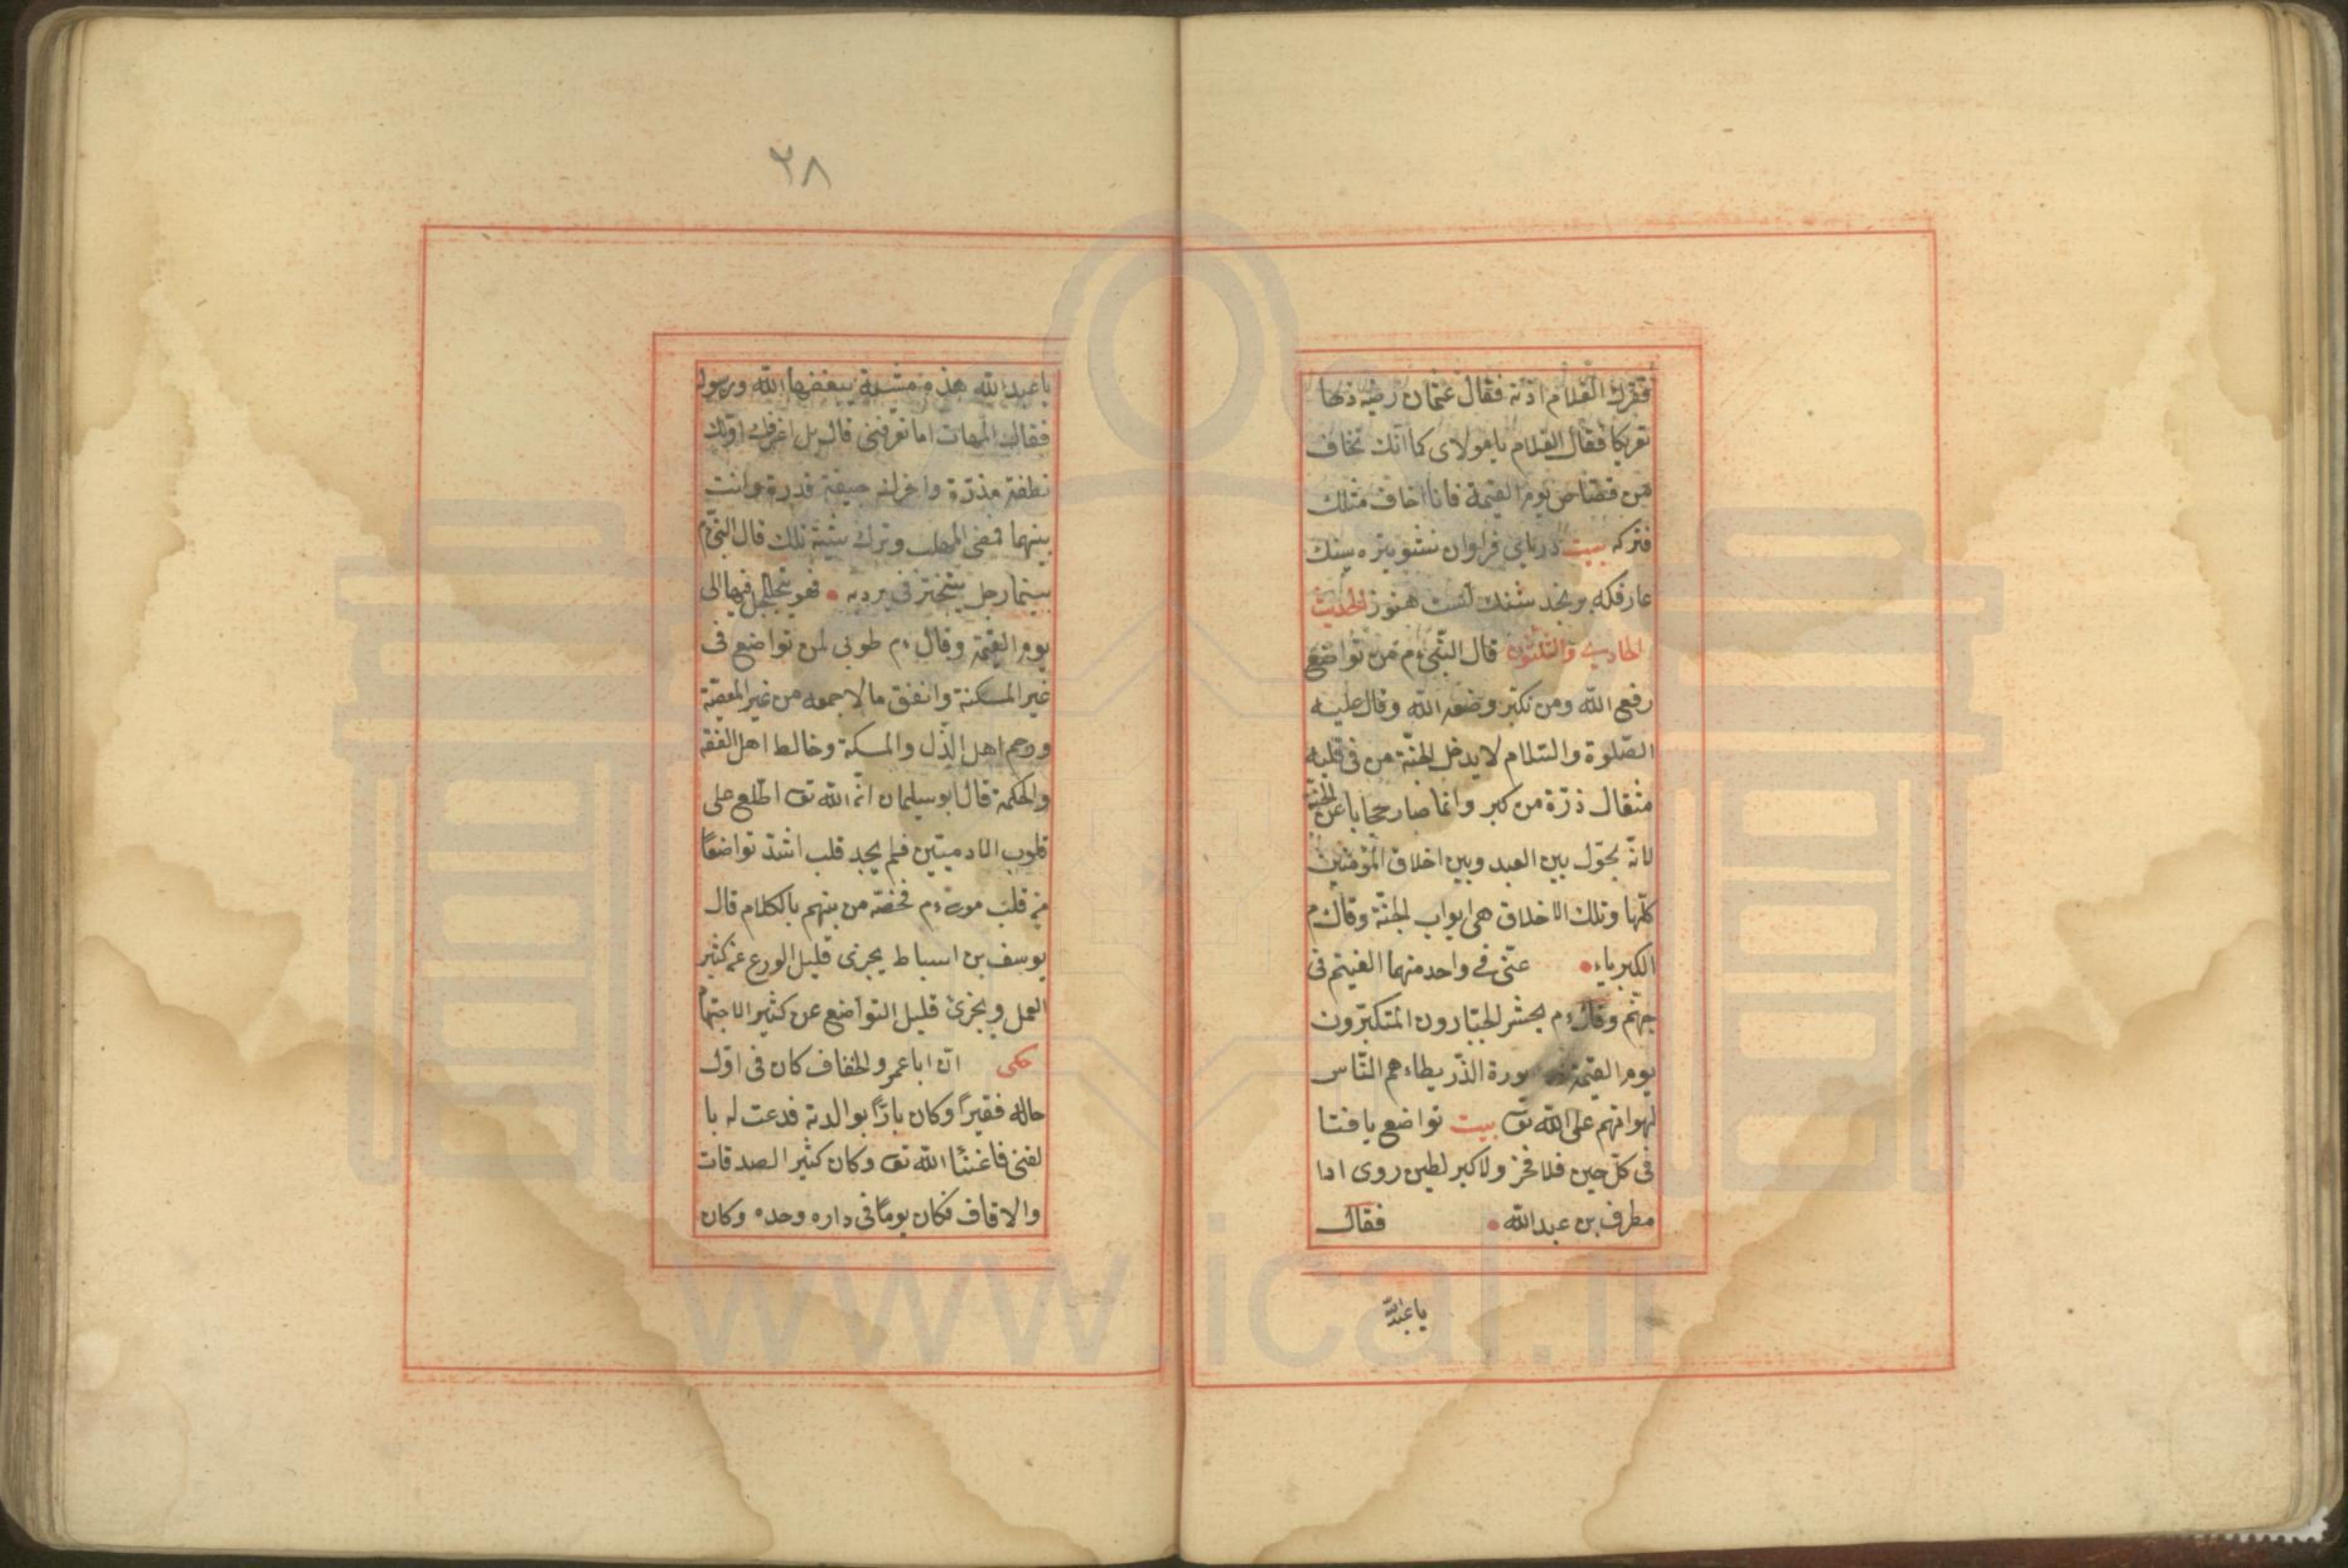 فقرك الغلام اذنه فقال عثمان رضه زدها
تعريكا فقال الغلام يا مولاى كما انك تخاف
من قصاص يوم القيمة فانا اخاف مثلك
فتركه بيت درياى فراوان نشو تيره بسنك
عارفكه برنجد تنك آبست هنوز الحديث
الحادى والثلثون قال النبى ءم من تواضع
رفع الله ومن تكبر وضعه الله وقال عليه
الصلوة والسلام لا يدخل الجنة من فى قلبه
مثقال ذرة من كبر وانما صار حجابا عن الجنة
لانه يحول بين العبد وبين اخلاق المؤمنين
كلها وتلك الاخلاق هى ابواب الجنة وقال ءم
الكبرياء فى واحد منهما القيتم فى
جهنم وقال ءم يحشر الجبارون المتكبرون
يوم القيمة صورة الذر يطاءهم الناس
لهوانهم على الله تع بيت تواضع يا فتا
فى كل حين فلا فخر ولا كبر لطين روى ان
مطرف بن عبد الله فقال
يا عبد الله
٢٨
يا عبد الله هذه مشية يبغضها الله ورسوله
فقال المهلب اما تعرفنى قال بل اعرفك اولك
نطفة مذرة واخرك جيفة قذرة وانت
بينهما فمضى المهلب وترك مشيته تلك قال النبى ءم
بينما رجل يتبختر فى برديه فهو يتجلجل فيها الى
يوم القيمة وقال ءم طوبى لمن تواضع فى
غير المسكنة وانفق مالا جمعه من غير المعصية
ورحم اهل الذل والمسكة وخالط اهل الفقه
والحكمة قال ابو سليمان ان الله تع اطلع على
قلوب الادميين فلم يجد قلب اشد تواضعا
من قلب موسى ءم فخصه من بينهم بالكلام قال
يوسف بن اسباط يجزى قليل الورع عن كثير
العمل ويجزى قليل التواضع عن كثير الاجتها
حكى ان ابا عمرو الخفاف كان فى اول
حاله فقيرا وكان بارا بوالدته فدعت له با
لغنى فاغنا الله تع وكان كثير الصدقات
والاقاف فكان يوما فى داره وحده وكان